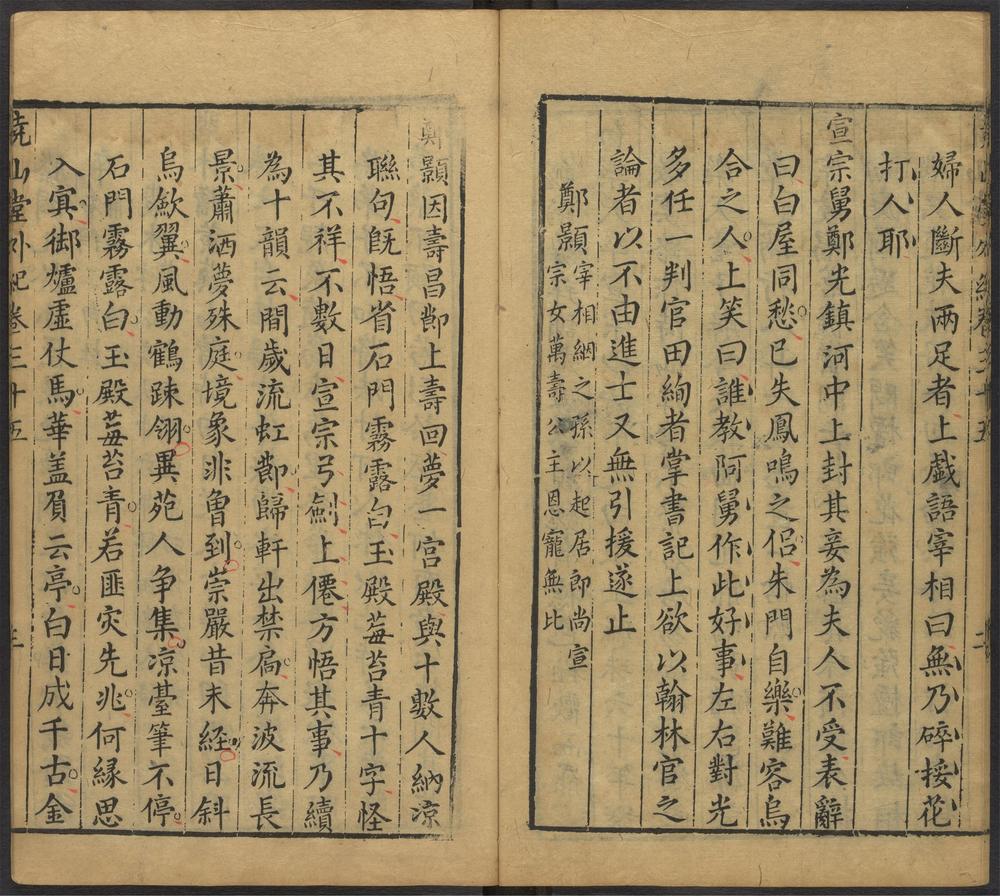 婦人斷夫兩足者上戱語宰相曰無乃碎挼花
打人耶
宣宗舅鄭光鎮河中上封其妾為夫人不受表辭
曰白屋同愁已失鳳鳴之侶朱門自樂難容烏
合之人上笑曰誰教阿舅作此好事左右對光
多任一判官田絢者掌書記上欲以翰林官之
論者以不由進士又無引援遂止
鄭顥宰相絪之孫以起居郎尚宣
宗女萬壽公主恩寵無比
鄭顥因壽昌節上壽回夢一宮殿與十數人納凉
聯句旣悟省石門霧露白玉殿莓苔青十字怪
其不祥不數日宣宗弓劍上僊方悟其事乃續
為十韻云間歲流虹節歸軒出禁扃奔波流長
景蕭洒夢殊庭境象非曾到崇嚴昔未經日斜
烏歛翼風動鶴踈翎異苑人争集凉臺筆不停
石門霧露白玉殿莓苔青若匪灾先兆何緣思
入㝠御爐虛仗馬華盖負云亭白日成千古金
堯山堂外紀卷三十五 三